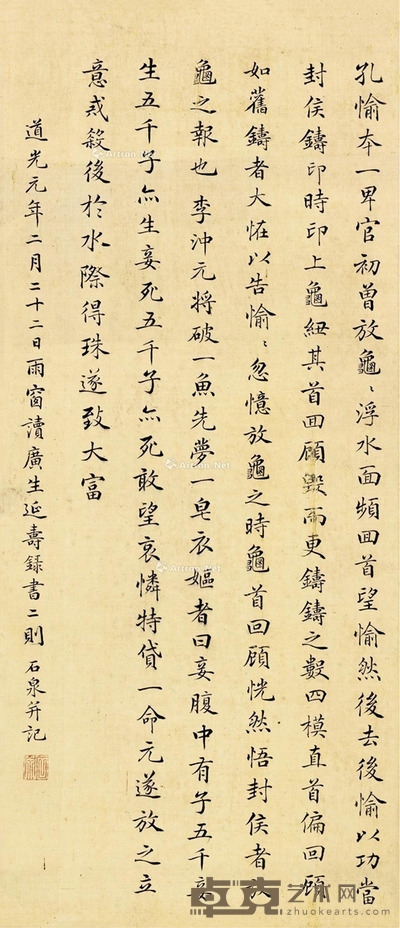 孔愉本一卑官初曾放龜〻浮水面頻回首望愉然後去後愉以功當
封侯鑄印時印上龜紐其首回顧毀而更鑄鑄之數四模直首偏回顧
如舊鑄者大怪以告愉〻忽憶放龜之時龜首回顧恍然悟封侯者放
龜之報也李沖元将破一魚先夢一皂衣嫗者曰妾腹中有子五千妾
生五千子亦生妾死五千子亦死敢望哀憐特貸一命元遂放之立
意戒殺後於水際得珠遂致大富
道光元年二月二十二日雨窗讀廣生延壽録書二則 石泉并記
Artron.Net
卓克艺术网
zhuokearts.com